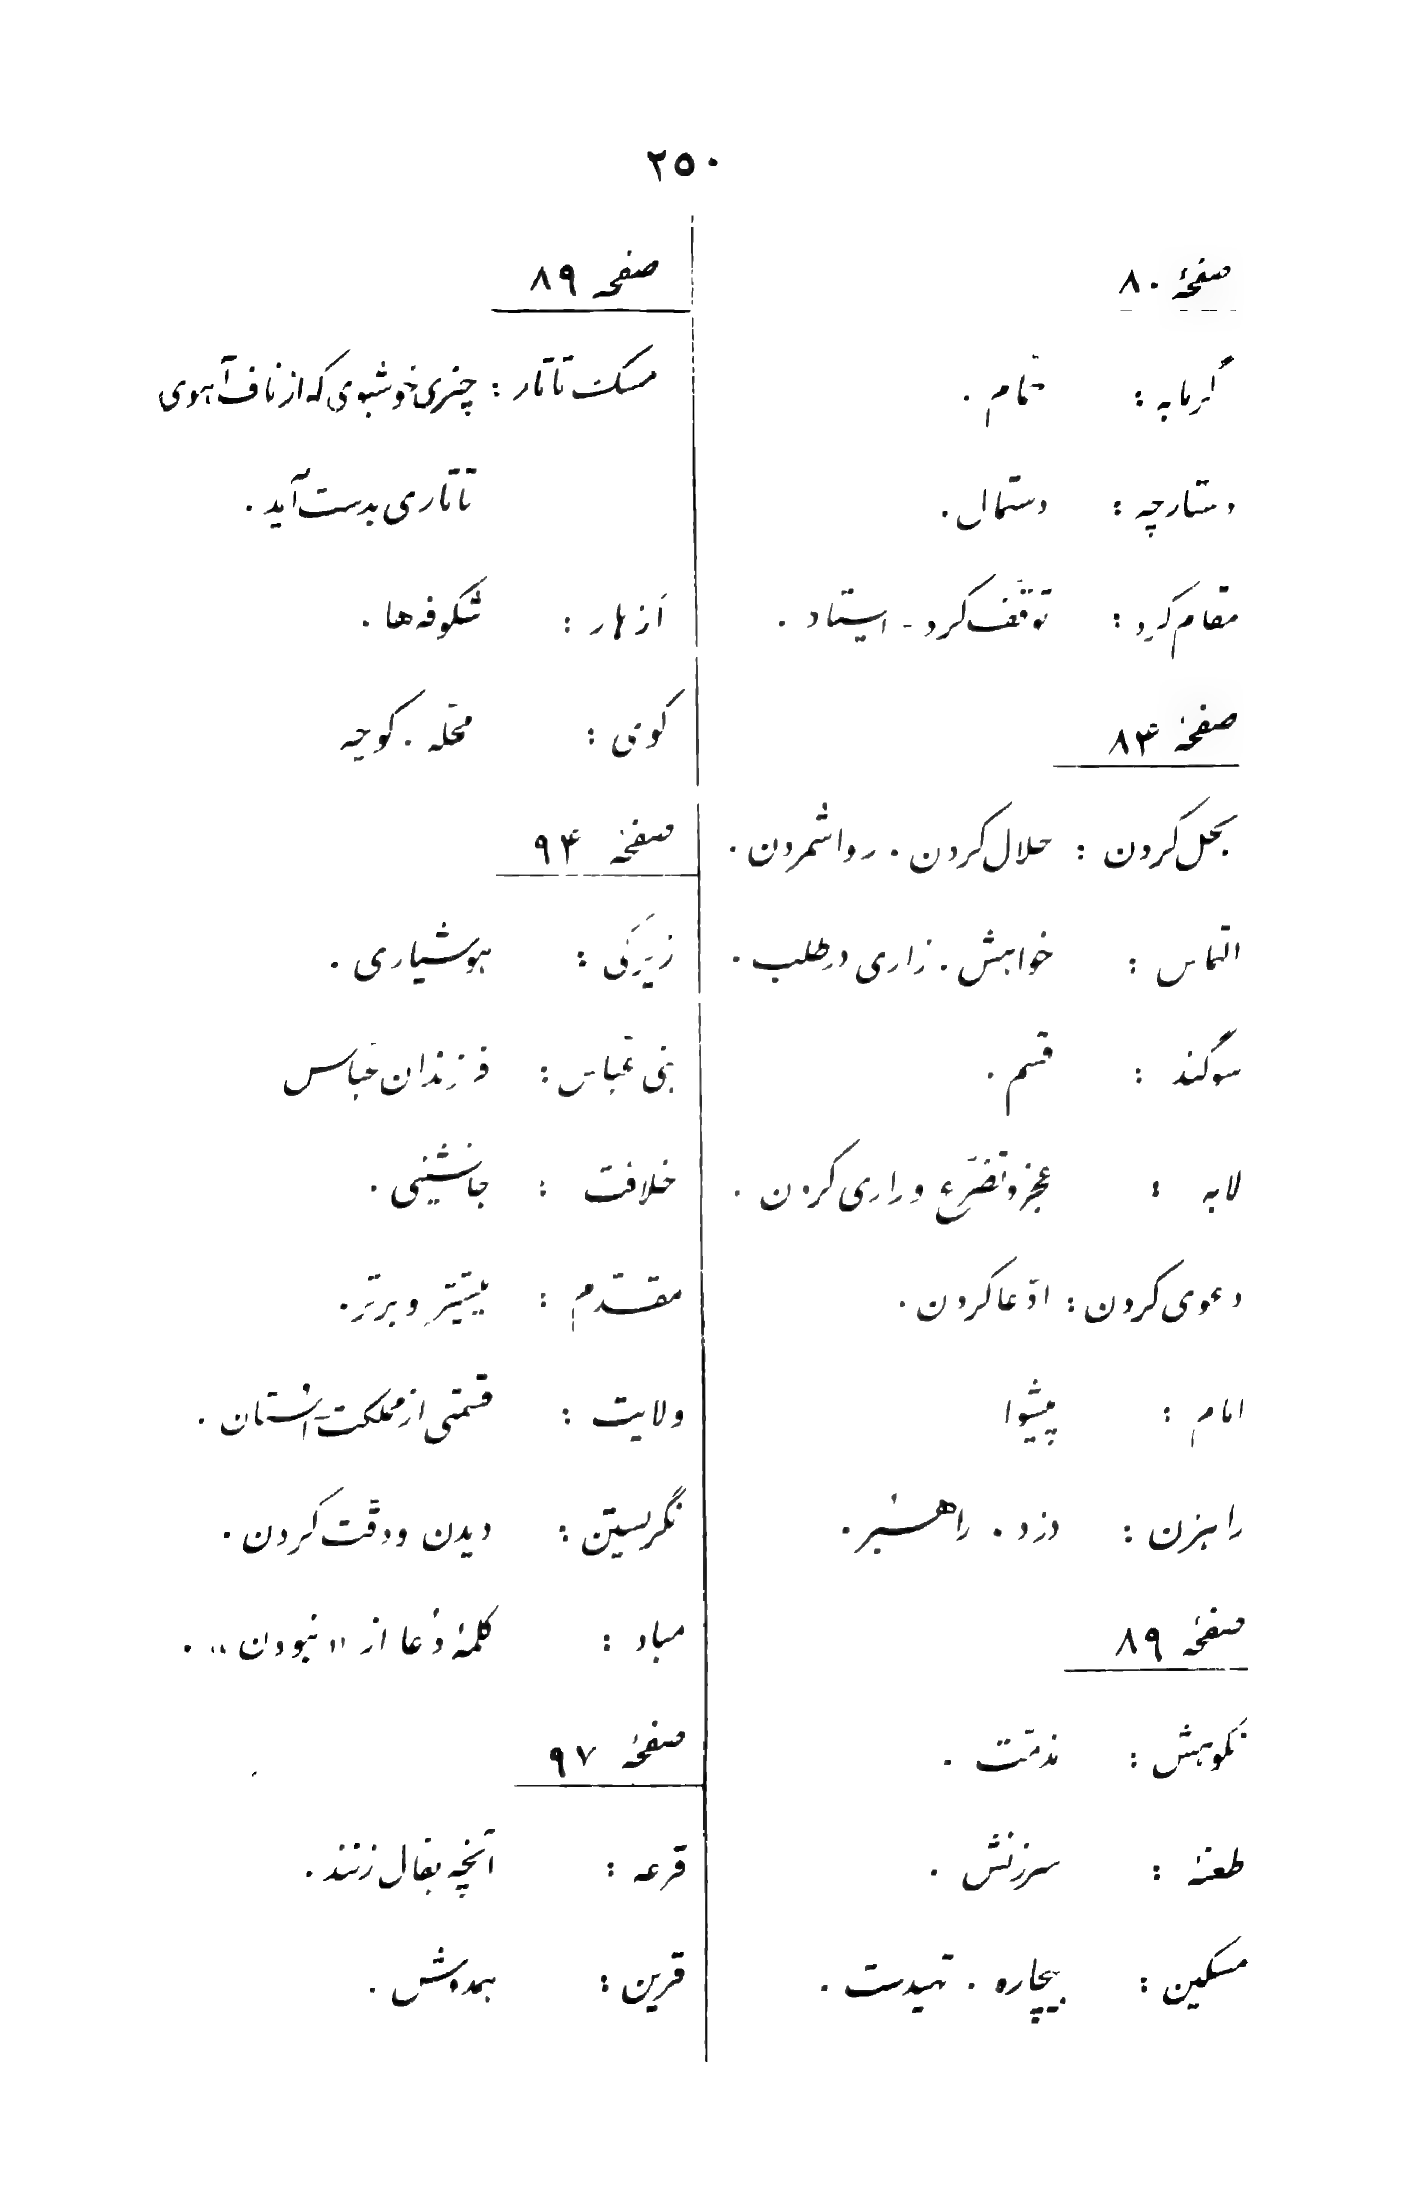 ۲۵۰
صفحهٔ ۸۰
گرمابه : حمّام .
دستارچه : دستمال .
مقام کرد : توقّف کرد ـ ایستاد .
صفحهٔ ۸۴
بحل کردن : حلال کردن . روا شمردن .
التماس : خواهش . زاری در طلب .
سوگند : قسم .
لابه : عجز و تضرّع و زاری کردن .
دعوی کردن : ادّعا کردن .
امام : پیشوا
راهزن : دزد . راهبُر .
صفحهٔ ۸۹
نکوهش : مذمّت .
طعنه : سرزنش .
مسکین : بیچاره . تهیدست .
صفحه ۸۹
مسک تاتار : چیزی خوشبوی که از ناف آهوی
تاتاری بدست آید .
اَزهار : شکوفه‌ها .
کوی : محلّه . کوچه
صفحهٔ ۹۴
زیرَکی : هوشیاری .
بنی عبّاس : فرزندان عبّاس
خلافت : جانشینی .
مقدّم : بیشتر و برتر .
ولایت : قسمتی از مملکت ـ اُستان .
نگریستن : دیدن و دقّت کردن .
مباد : کلمهٔ دُعا از «نبودن» .
صفحهٔ ۹۷
قرعه : آنچه بفال زنند .
قرین : همدوش .